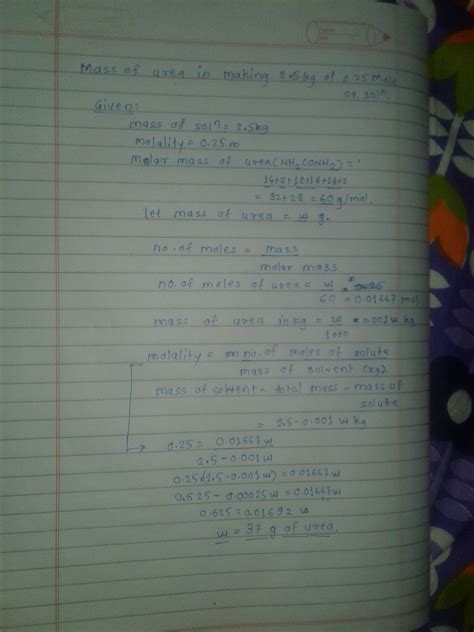 Mass of urea in making 2.5kg of 0.25 Mole
aq. solⁿ.
Given:
mass of solⁿ = 2.5kg
molality = 0.25 m
molar mass of urea (NH₂CONH₂) =
14+2+12+16+14+2
= 32+28 = 60 g/mol.
let mass of urea = w g.
no. of moles = mass
molar mass
no. of moles of urea = w
60 = 0.01667 mol
mass of urea in kg = w = 0.001 w kg
1000
molality = no. of moles of solute
mass of solvent (kg)
mass of solvent = total mass - mass of
solute
= 2.5 - 0.001 w kg
0.25 = 0.01667 w
2.5 - 0.001 w
0.25(2.5 - 0.001 w) = 0.01667 w
0.625 - 0.00025 w = 0.01667 w
0.625 = 0.01692 w
w = 37 g of urea.